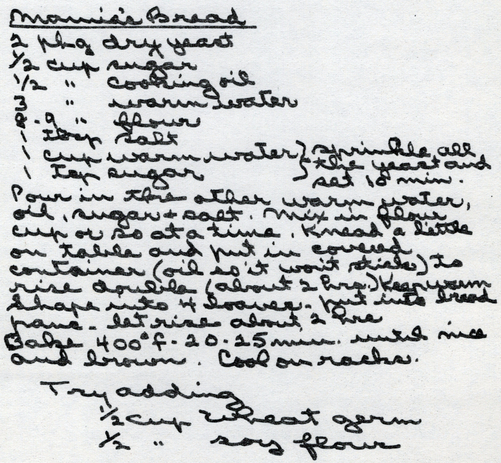 Mamia's Bread
2 pkg dry yeast
1/2 cup sugar
1/2 " cooking oil
3 " warm water
8-9 " flour
1 tbsp salt
1 cup warm water } sprinkle all
1 tsp sugar } the yeast and
set 10 min.
Pour in the other warm water,
oil, sugar + salt. Mix in flour
cup or so at a time. Knead a little
on table and put in covered
container (oil so it won't stick) to
rise double (about 2 hrs.) Keep warm
Shape into 4 loaves - put into bread
pans - let rise about 2 hrs
Bake 400°f - 20-25 min. until nice
and brown. Cool on racks.
Try adding
1/2 cup wheat germ
1/2 " soy flour